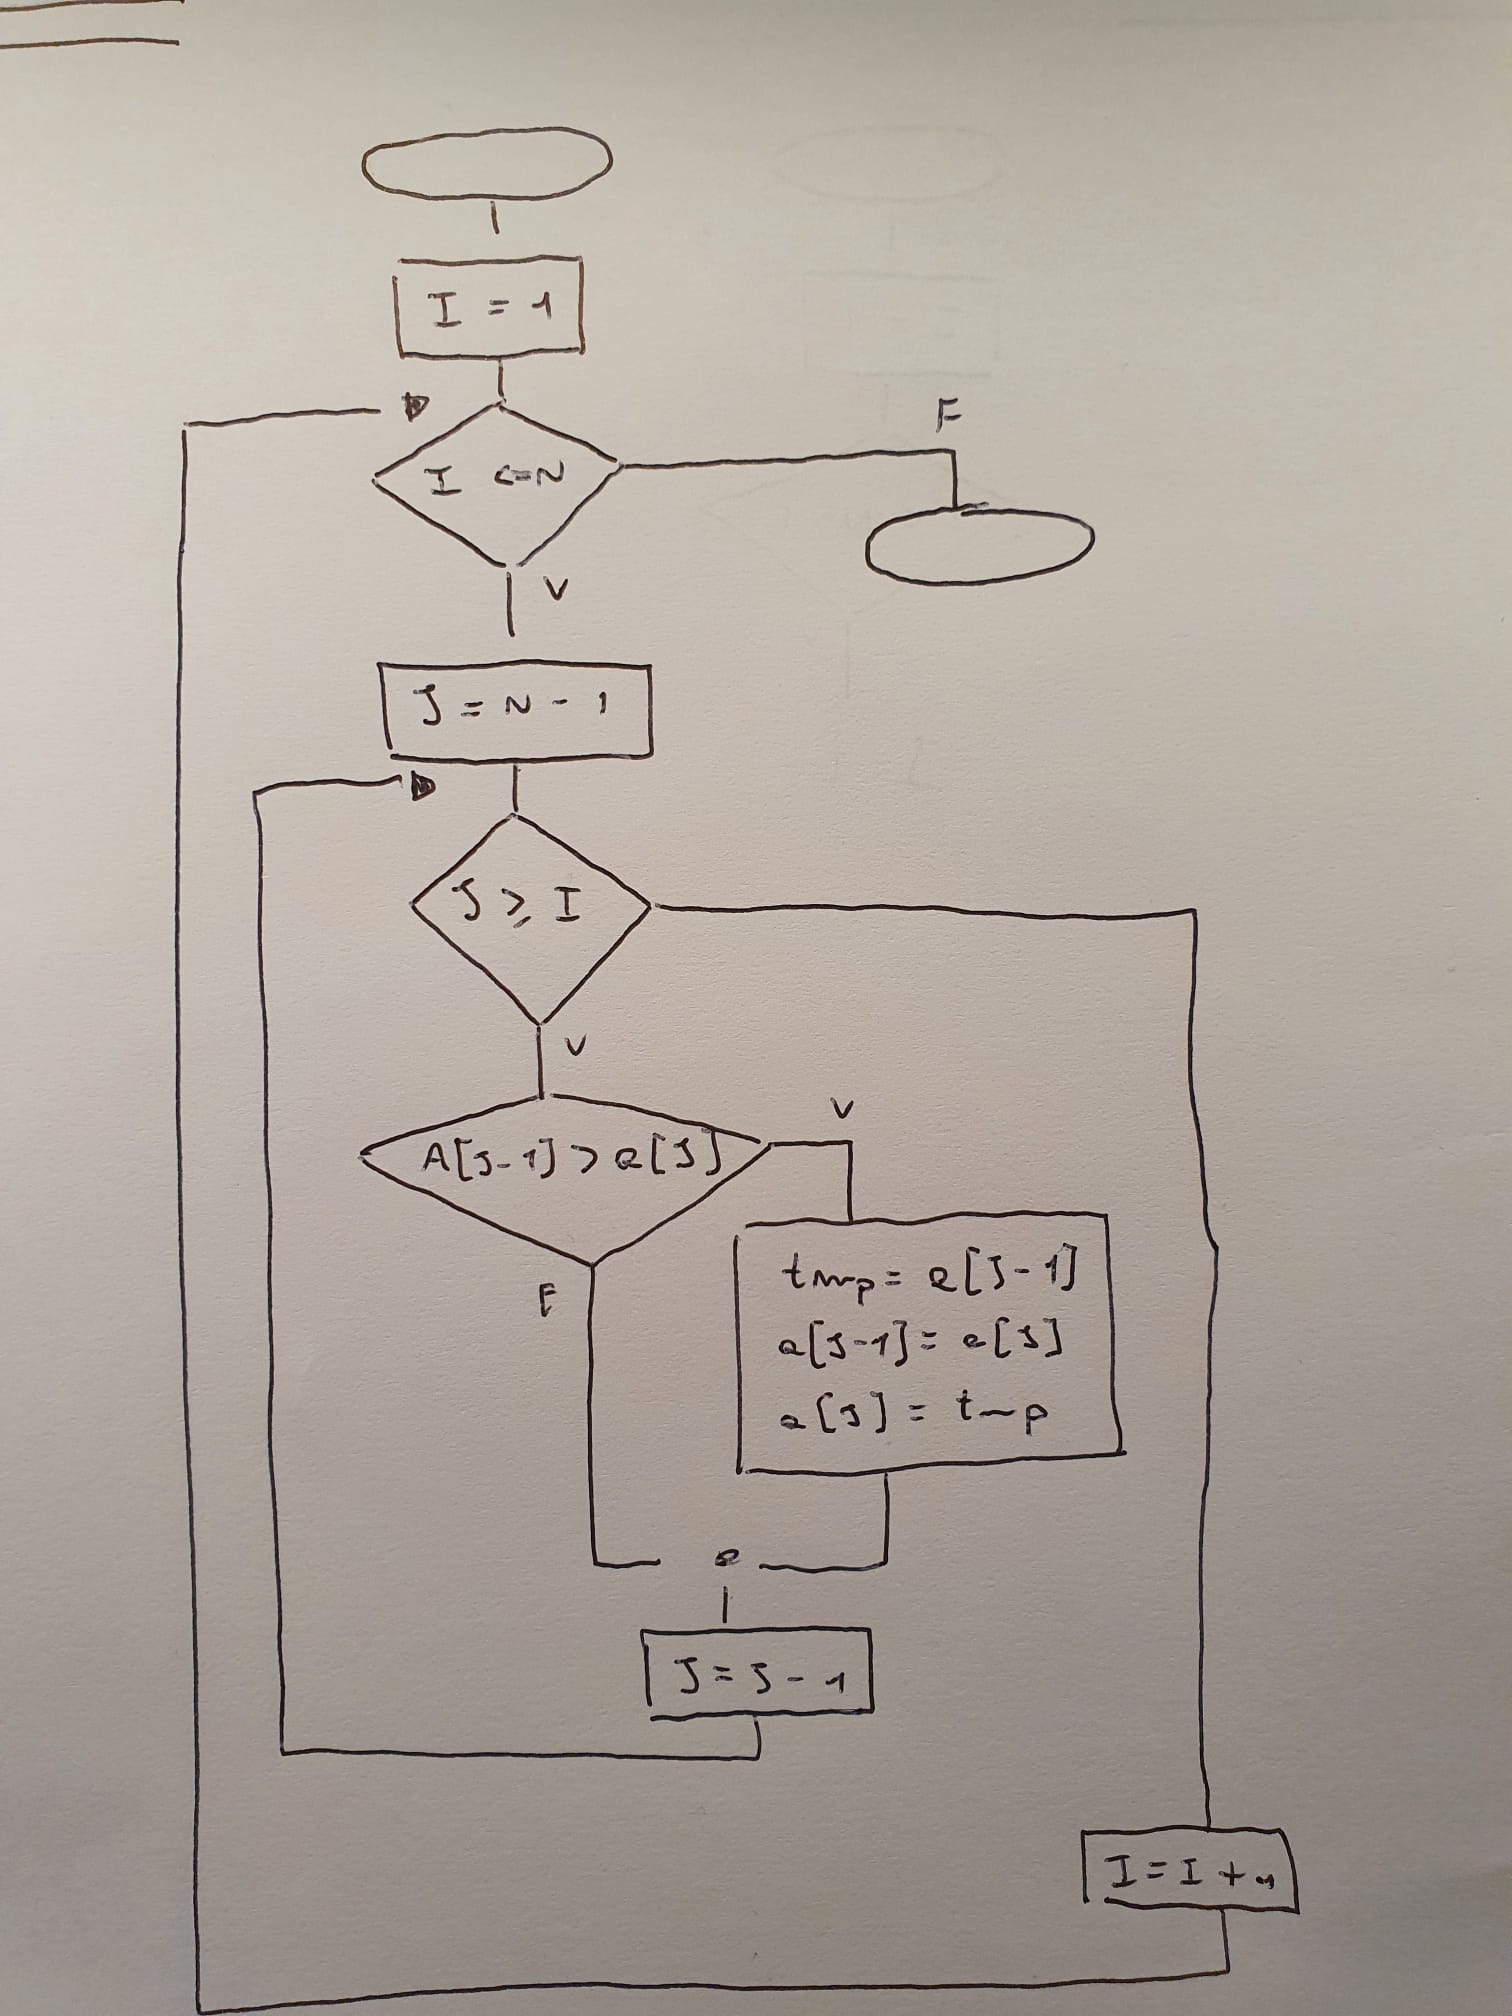 I = 1
I <=N
F
V
J = N - 1
J ≥ I
V
A[J-1] > a[J]
V
F
tmp = a[J-1]
a[J-1] = a[J]
a[J] = tmp
J = J - 1
I = I + 1